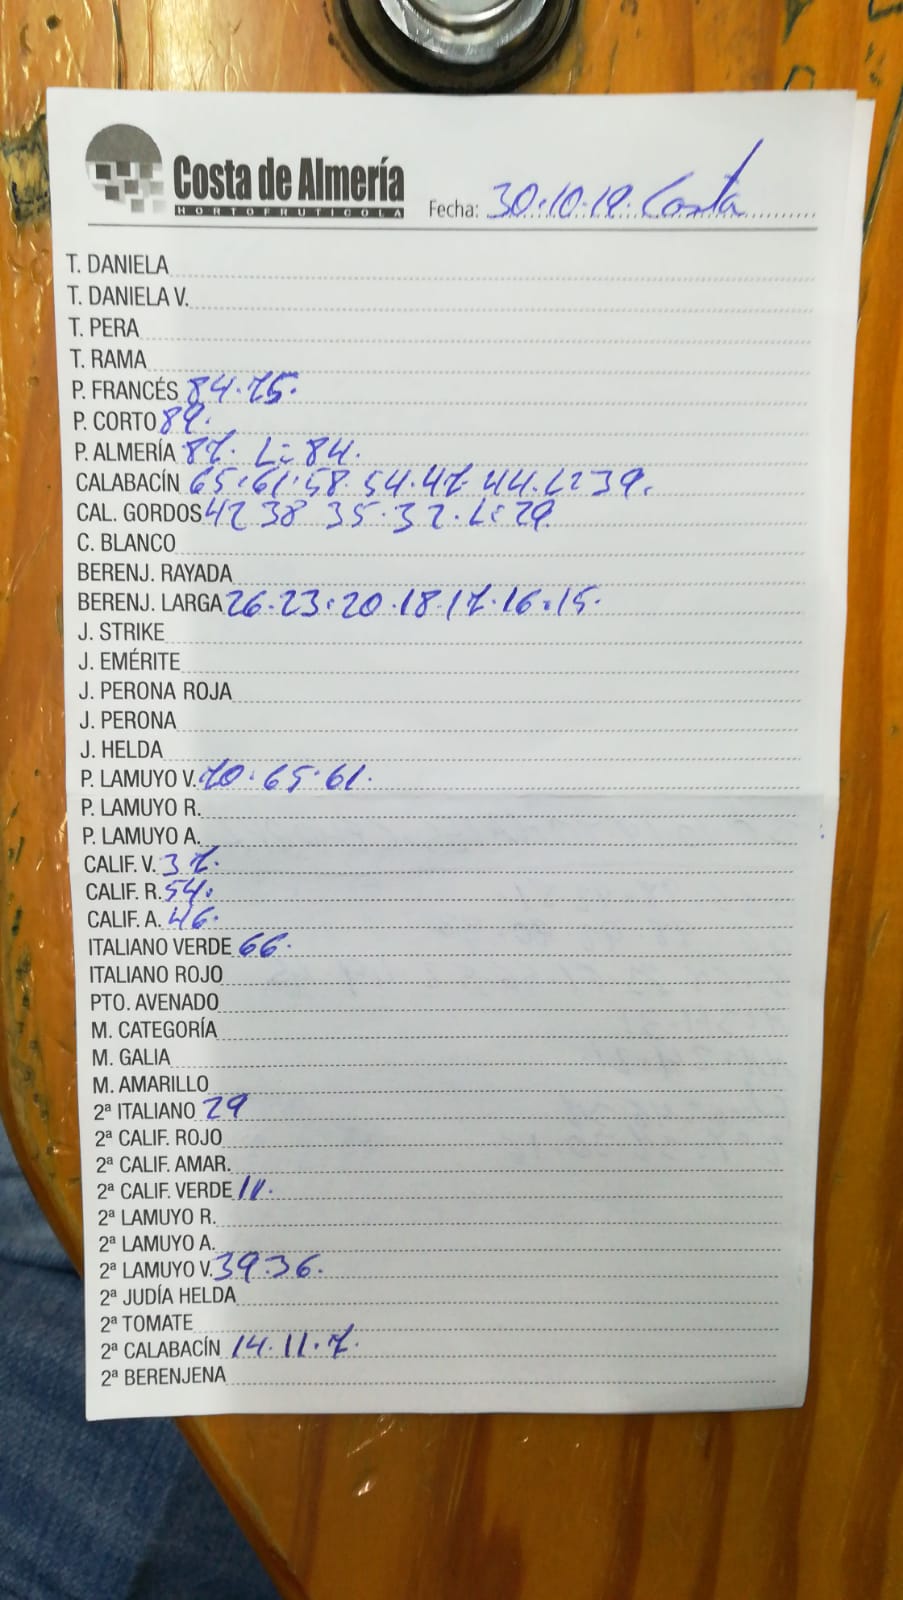 Costa de Almería
HORTOFRUTICOLA
Fecha: 30.10.19. Costa
T. DANIELA
T. DANIELA V.
T. PERA
T. RAMA
P. FRANCÉS 84.75.
P. CORTO 89.
P. ALMERÍA 87. L=84.
CALABACÍN 65.61.58. 54.47. 44. L=39.
CAL. GORDOS 42 38 35.32. L=29
C. BLANCO
BERENJ. RAYADA
BERENJ. LARGA 26.23.20.18.17.16.15.
J. STRIKE
J. EMÉRITE
J. PERONA ROJA
J. PERONA
J. HELDA
P. LAMUYO V. 70.65.61.
P. LAMUYO R.
P. LAMUYO A.
CALIF. V. 37.
CALIF. R. 54.
CALIF. A. 46.
ITALIANO VERDE 66.
ITALIANO ROJO
PTO. AVENADO
M. CATEGORÍA
M. GALIA
M. AMARILLO
2ª ITALIANO 29
2ª CALIF. ROJO
2ª CALIF. AMAR.
2ª CALIF. VERDE 11.
2ª LAMUYO R.
2ª LAMUYO A.
2ª LAMUYO V. 39.36.
2ª JUDÍA HELDA
2ª TOMATE
2ª CALABACÍN 14.11.7.
2ª BERENJENA